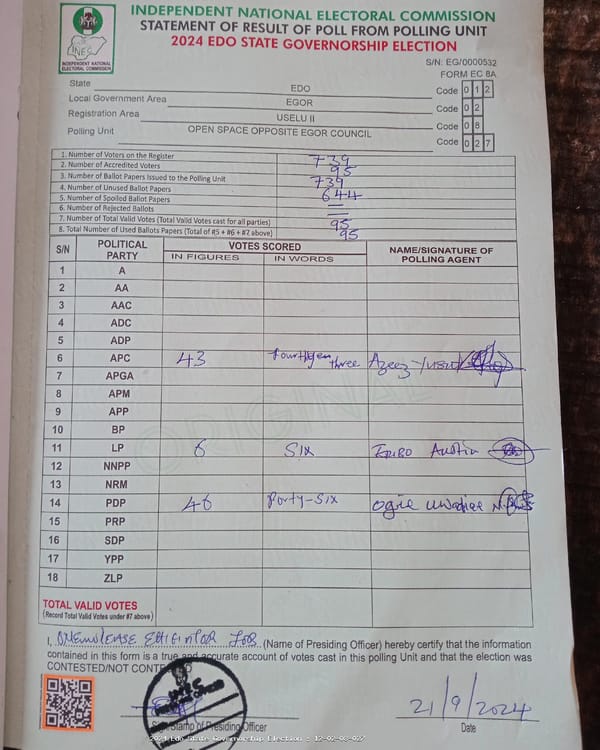 INDEPENDENT NATIONAL ELECTORAL COMMISSION
STATEMENT OF RESULT OF POLL FROM POLLING UNIT
2024 EDO STATE GOVERNORSHIP ELECTION
INEC
INDEPENDENT NATIONAL
ELECTORAL COMMISSION
S/N: EG/0000532
FORM EC 8A
State EDO Code 0 1 2
Local Government Area EGOR Code 0 2
Registration Area USELU II Code 0 8
Polling Unit OPEN SPACE OPPOSITE EGOR COUNCIL Code 0 2 7
1. Number of Voters on the Register 739
2. Number of Accredited Voters 95
3. Number of Ballot Papers Issued to the Polling Unit 739
4. Number of Unused Ballot Papers 644
5. Number of Spoiled Ballot Papers =
6. Number of Rejected Ballots =
7. Number of Total Valid Votes (Total Valid Votes cast for all parties) 95
8. Total Number of Used Ballots Papers (Total of #5 + #6 + #7 above) 95
S/N POLITICAL PARTY VOTES SCORED NAME/SIGNATURE OF POLLING AGENT
IN FIGURES IN WORDS
1 A
2 AA
3 AAC
4 ADC
5 ADP
6 APC 43 three Azeez Yusuf
7 APGA
8 APM
9 APP
10 BP
11 LP 6 Six Austin
12 NNPP
13 NRM
14 PDP 46 Forty-Six ogie
15 PRP
16 SDP
17 YPP
18 ZLP
ORIGINAL
TOTAL VALID VOTES
(Record Total Valid Votes under #7 above)
I, JOB (Name of Presiding Officer) hereby certify that the information
contained in this form is a true and accurate account of votes cast in this polling Unit and that the election was
CONTESTED/NOT CONTESTED
21/9/2024
Stamp of Presiding Officer Date
2024 Edo State Governorship Election : 12-02-08-027